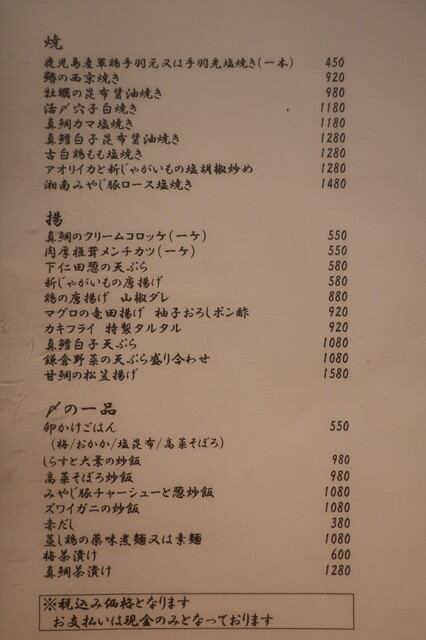 焼
鹿児島産軍鶏手羽元又は手羽先塩焼き(一本) 450
鰆の西京焼き 920
牡蠣の昆布醤油焼き 980
活〆穴子白焼き 1180
真鯛カマ塩焼き 1180
真鱈白子昆布醤油焼き 1280
古白鶏もも塩焼き 1280
アオリイカと新じゃがいもの塩胡椒炒め 1280
湘南みやじ豚ロース塩焼き 1480
揚
真鯛のクリームコロッケ(一ケ) 550
肉厚椎茸メンチカツ(一ケ) 550
下仁田葱の天ぷら 580
新じゃがいもの唐揚げ 580
鶏の唐揚げ 山椒ダレ 880
マグロの竜田揚げ 柚子おろしポン酢 920
カキフライ 特製タルタル 920
真鱈白子天ぷら 1080
鎌倉野菜の天ぷら盛り合わせ 1080
甘鯛の松笠揚げ 1580
〆の一品
卵かけごはん 550
(梅/おかか/塩昆布/高菜そぼろ)
しらすと大葉の炒飯 980
高菜そぼろ炒飯 980
みやじ豚チャーシューと葱炒飯 1080
ズワイガニの炒飯 1080
赤だし 380
蒸し鶏の薬味煮麺又は素麺 1080
梅茶漬け 600
真鯛茶漬け 1280
※税込み価格となります
お支払いは現金のみとなっております